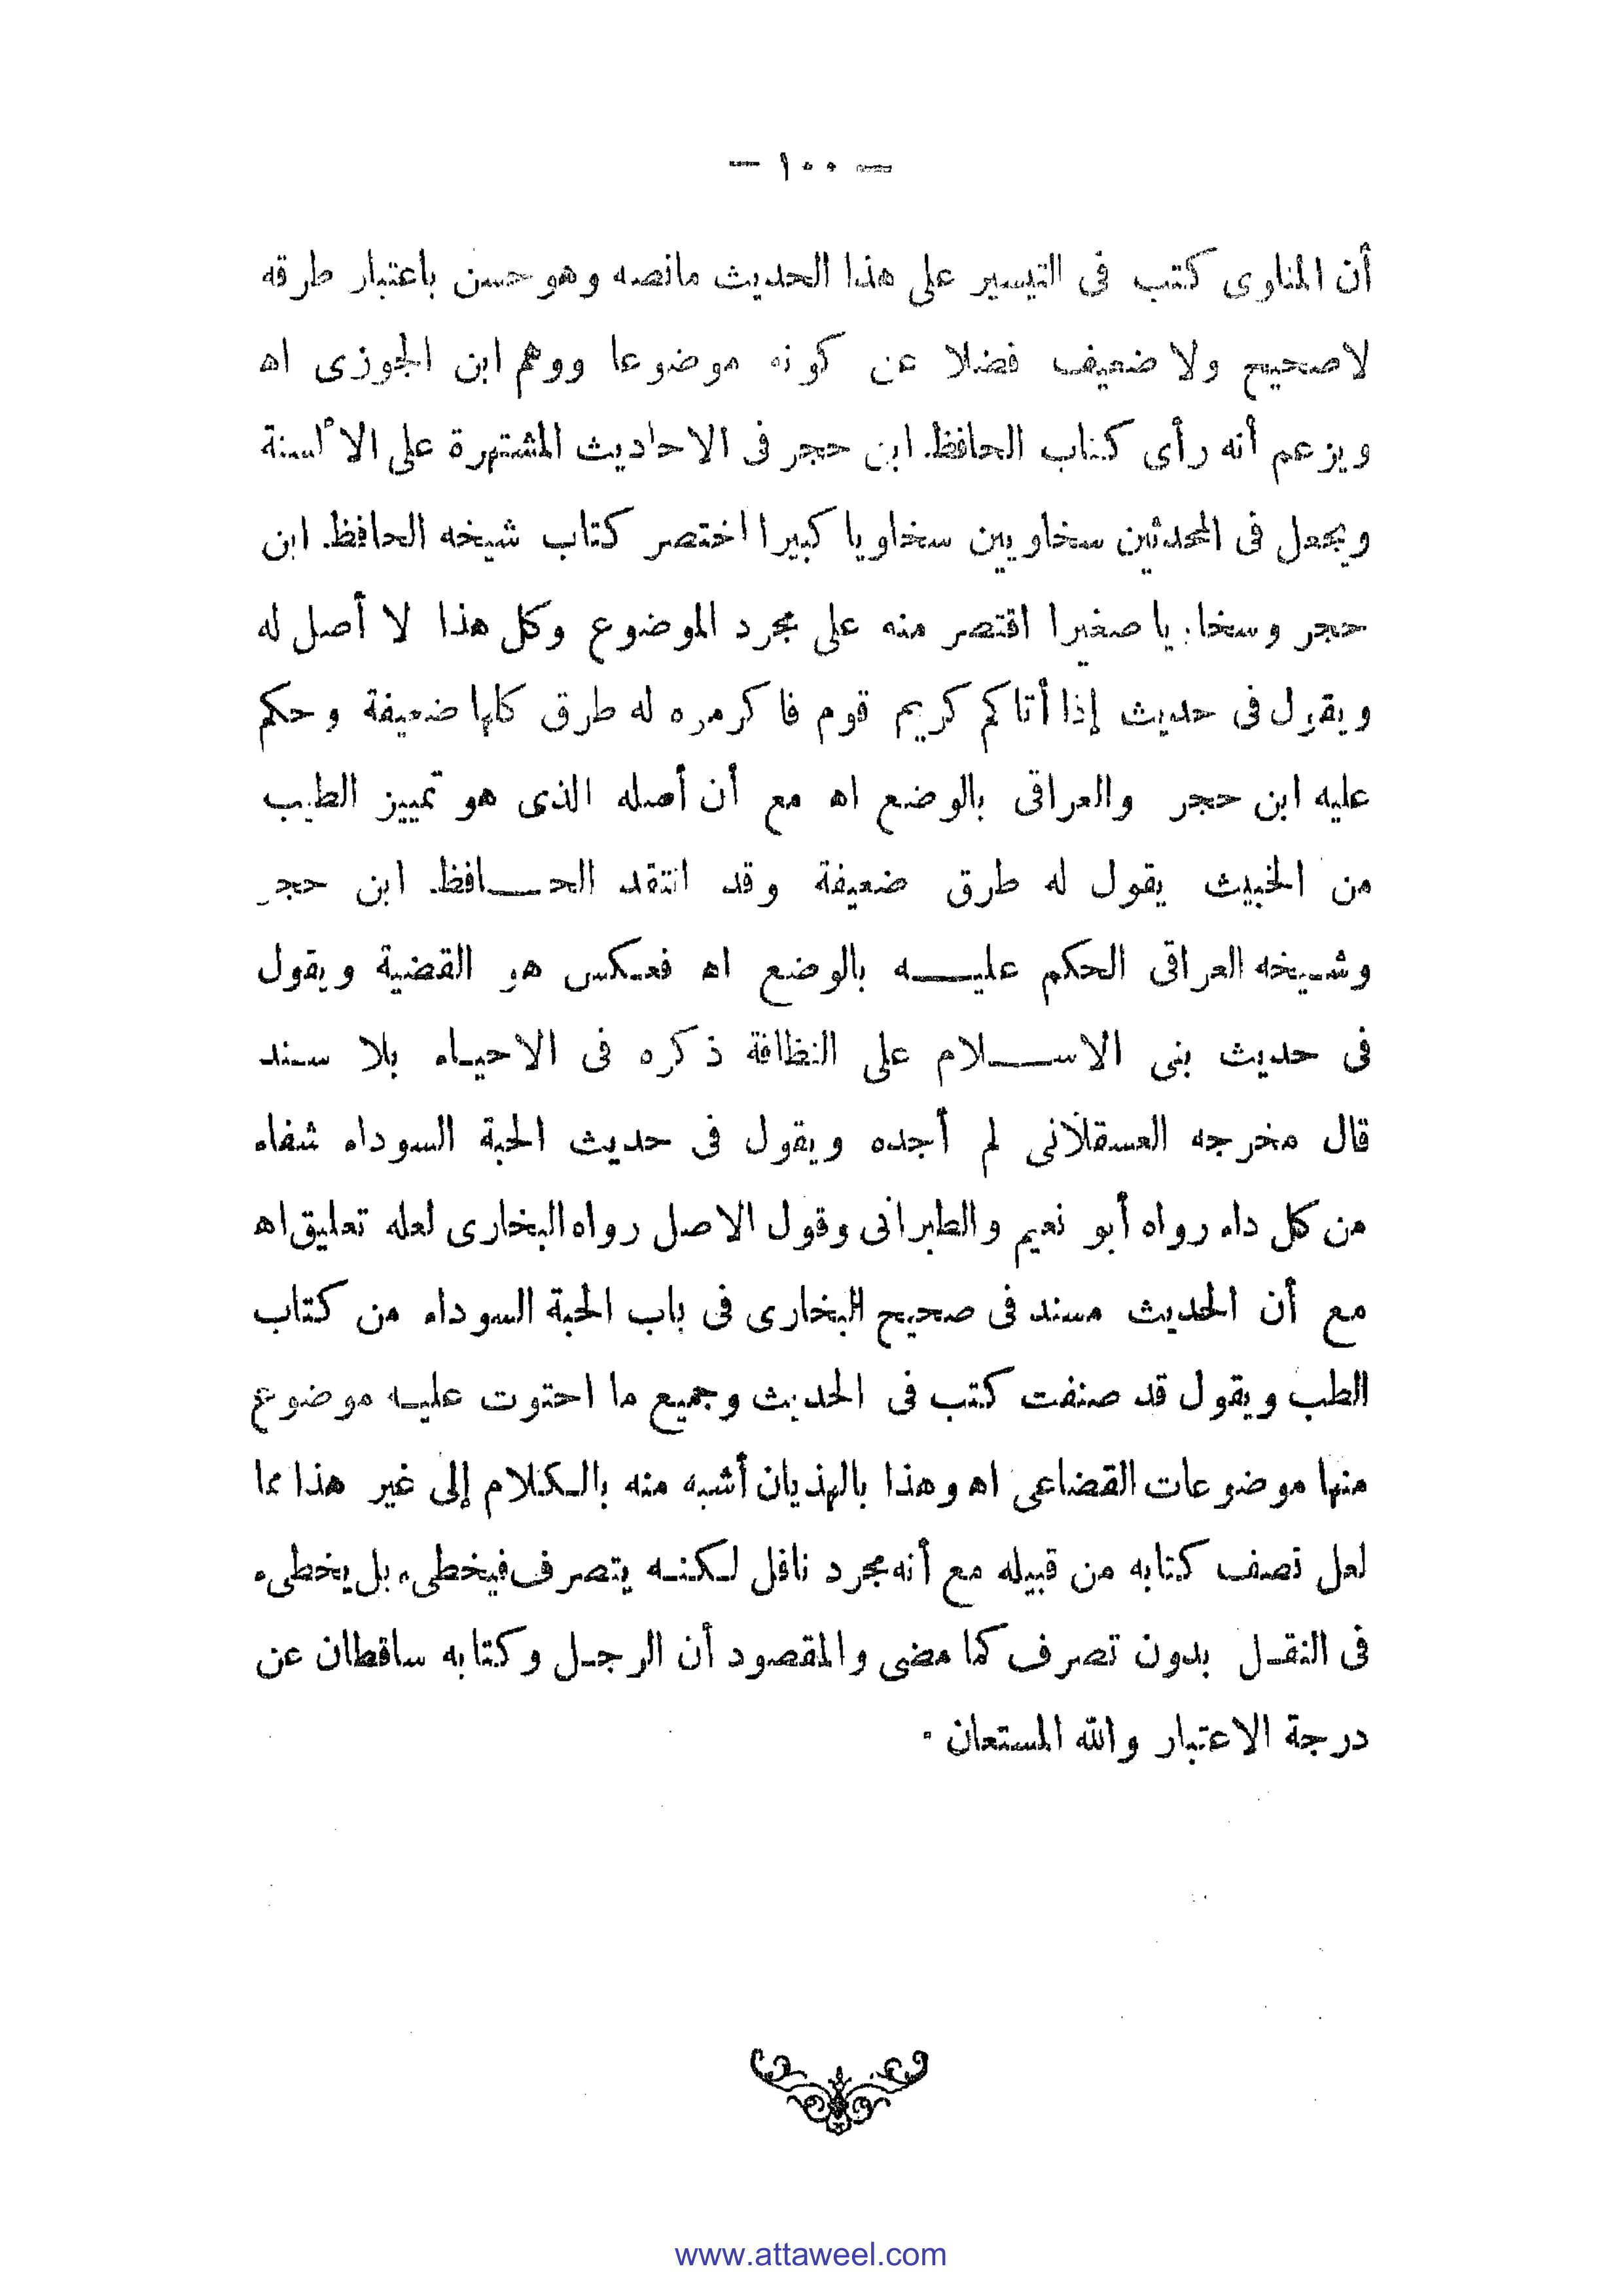 — ١٠٠ —
أن المناوى كتب فى التيسير على هذا الحديث مانصه وهو حسن باعتبار طرقه
لاصحيح ولا ضعيف فضلا عن كونه موضوعا ووهم ابن الجوزى اه
ويزعم أنه رأى كتاب الحافظ ابن حجر فى الاحاديث المشتهرة على الألسنة
ويجعل فى المحدثين سخاويين سخاويا كبيرا اختصر كتاب شيخه الحافظ ابن
حجر وسخاويا صغيرا اقتصر منه على مجرد الموضوع وكل هذا لا أصل له
ويقول فى حديث إذا أتاكم كريم قوم فاكرموه له طرق كلها ضعيفة وحكم
عليه ابن حجر والعراقى بالوضع اه مع أن أصله الذى هو تمييز الطيب
من الخبيث يقول له طرق ضعيفة وقد انتقد الحافظ ابن حجر
وشيخه العراقى الحكم عليه بالوضع اه فعكس هو القضية ويقول
فى حديث بنى الاسلام على النظافة ذكره فى الاحياء بلا سند
قال مخرجه العسقلانى لم أجده ويقول فى حديث الحبة السوداء شفاء
من كل داء رواه أبو نعيم والطبرانى وقول الاصل رواه البخارى لعله تعليق اه
مع أن الحديث مسند فى صحيح البخارى فى باب الحبة السوداء من كتاب
الطب ويقول قد صنفت كتب فى الحديث وجميع ما احتوت عليه موضوع
منها موضوعات القضاعى اه وهذا بالهذيان أشبه منه بالكلام إلى غير هذا مما
لعل نصف كتابه من قبيله مع أنه مجرد ناقل لكنه يتصرف فيخطىء بل يخطىء
فى النقل بدون تصرف كما مضى والمقصود أن الرجل وكتابه ساقطان عن
درجة الاعتبار والله المستعان .
www.attaweel.com